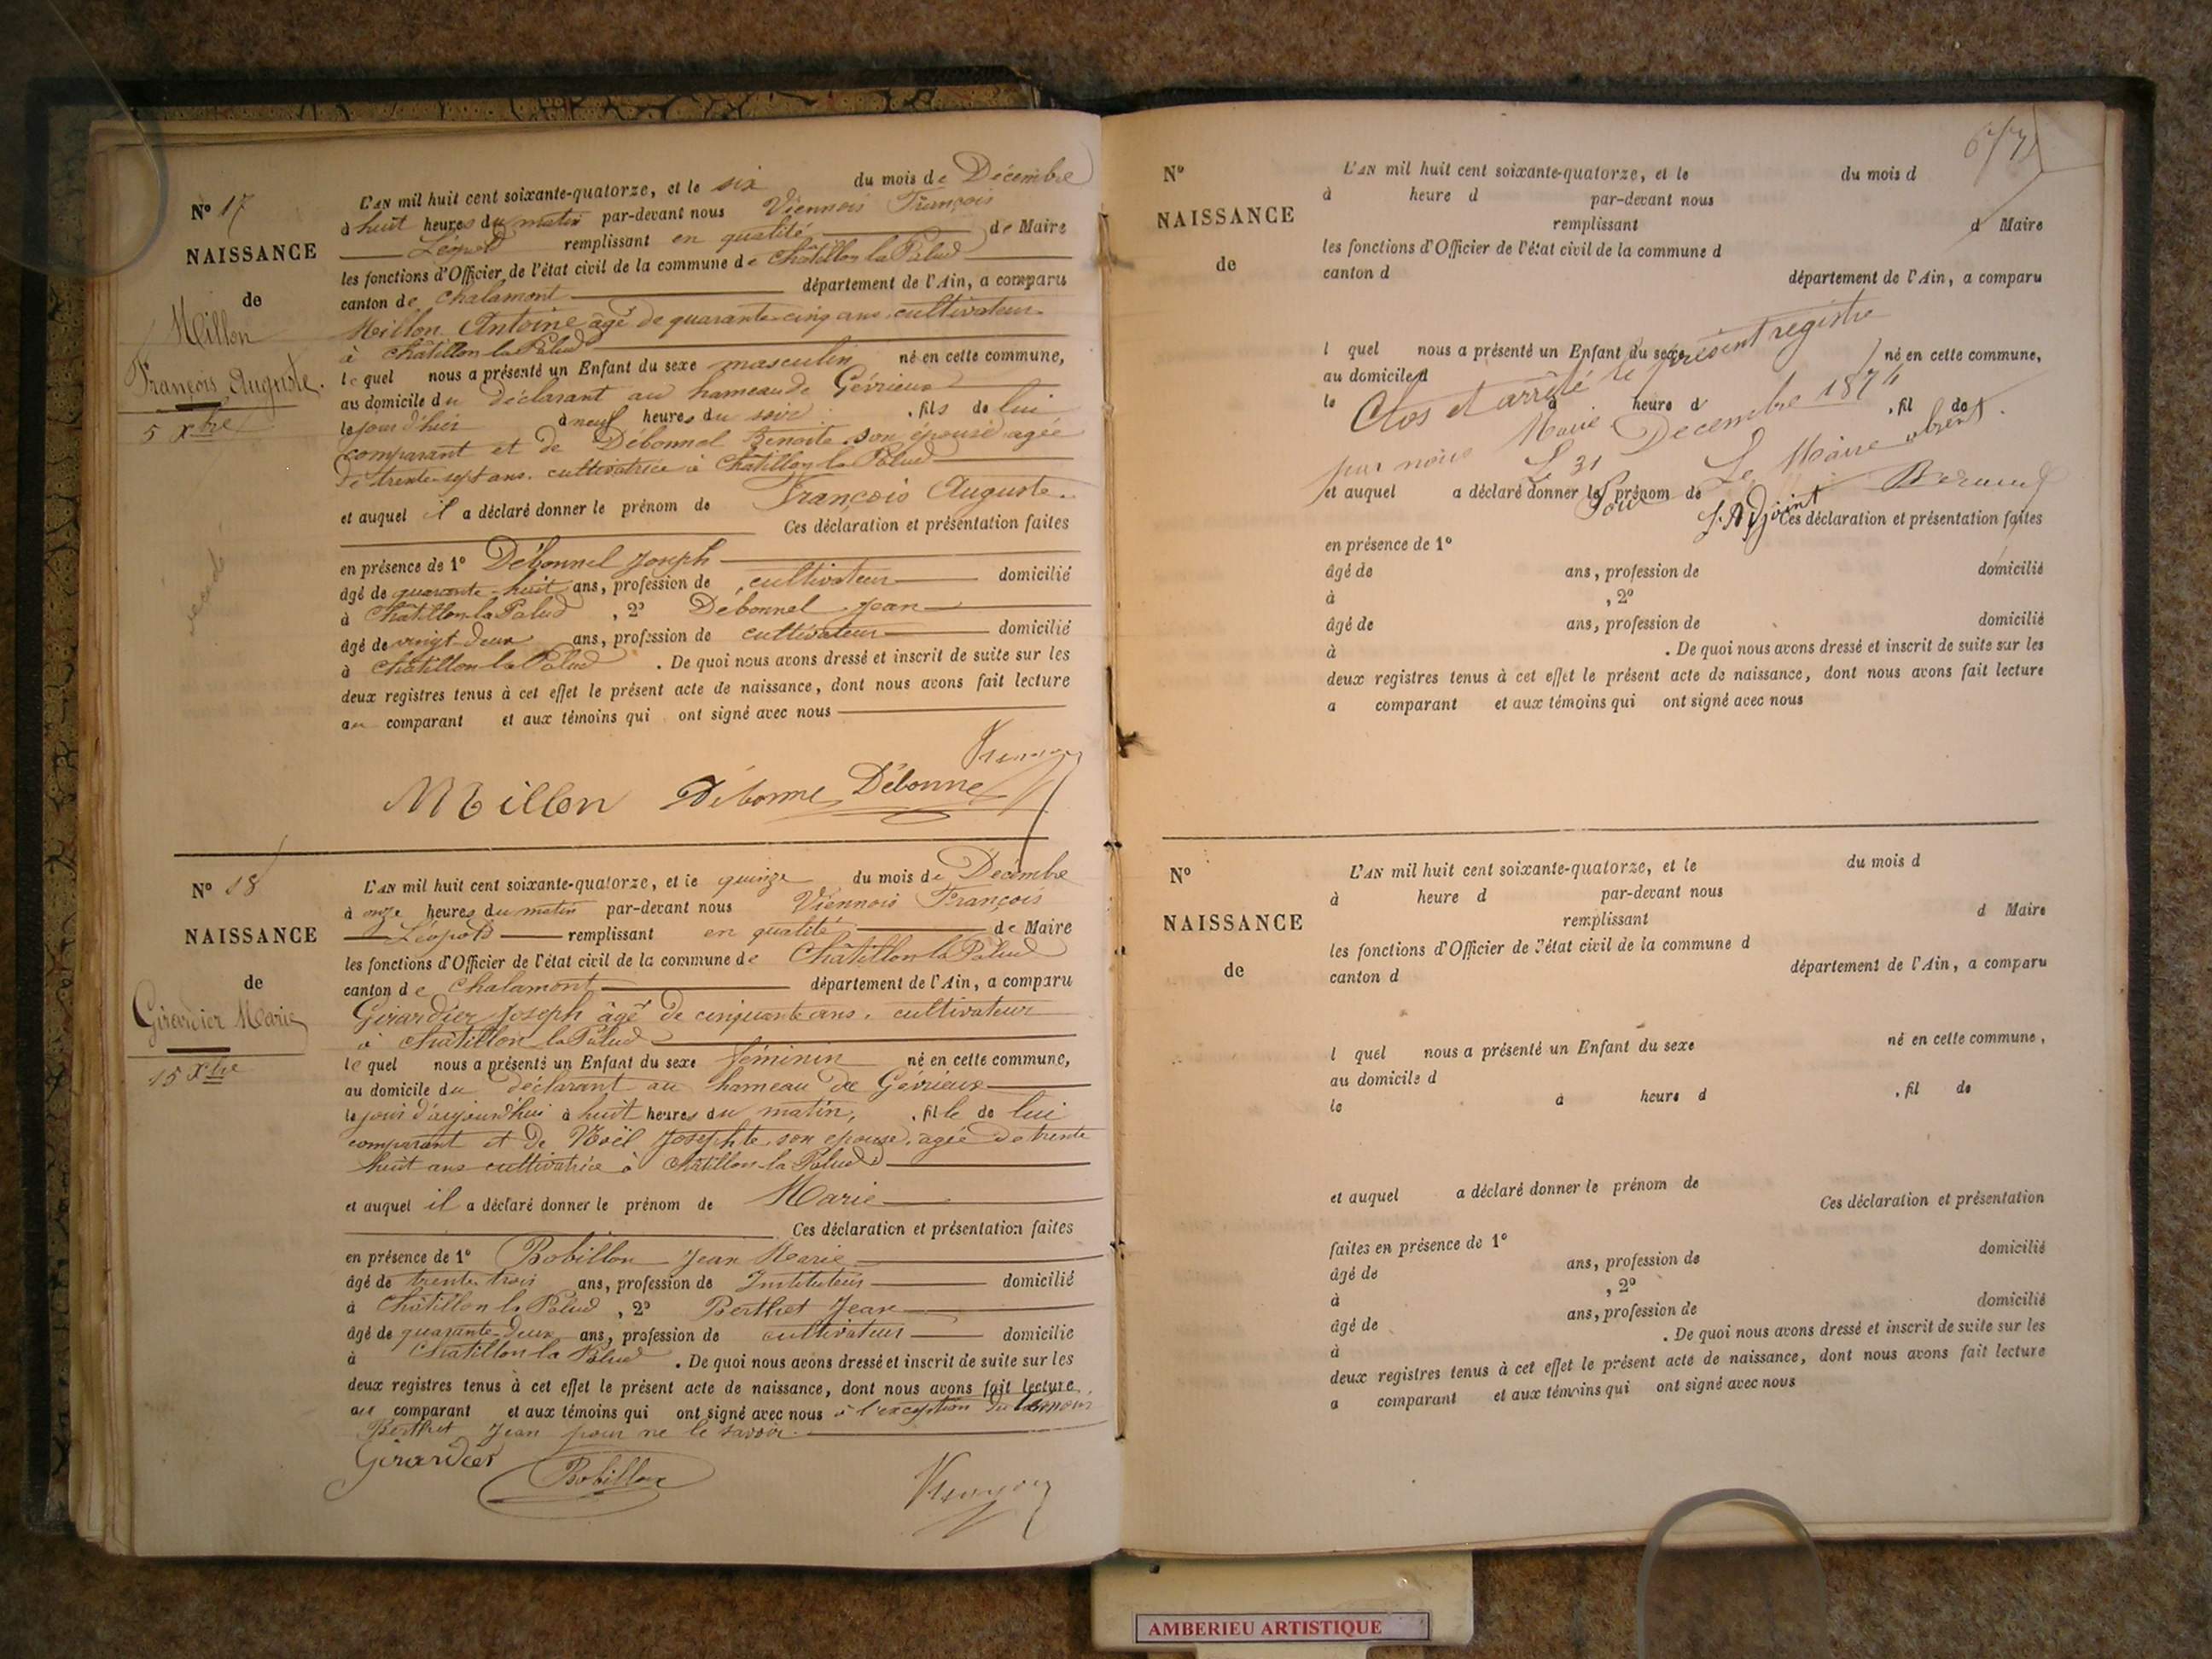 Nº 17
NAISSANCE
de
Millon
François Auguste.
5 Xbre
L'AN mil huit cent soixante-quatorze, et le six du mois de Décembre
à huit heures du matin par-devant nous Viennois François
Léopold remplissant en qualité de Maire
les fonctions d'Officier de l'état civil de la commune de Châtillon la Palud
canton de Chalamont département de l'Ain, a comparu
Millon Antoine âgé de quarante-cinq ans, cultivateur
à Châtillon la Palud
lequel nous a présenté un Enfant du sexe masculin né en cette commune,
au domicile du déclarant au hameau de Gévrieux
le jour d'hier à neuf heures du soir , fils de lui
comparant et de Débonnel Benoite son épouse agée
de trente-sept ans. cultivatrice à Châtillon la Palud
et auquel il a déclaré donner le prénom de François Auguste.
Ces déclaration et présentation faites
en présence de 1º Débonnel Joseph
âgé de quarante-huit ans, profession de cultivateur domicilié
à Châtillon la Palud , 2º Débonnel Jean
âgé de vingt-deux ans, profession de cultivateur domicilié
à Châtillon la Palud . De quoi nous avons dressé et inscrit de suite sur les
deux registres tenus à cet effet le présent acte de naissance, dont nous avons fait lecture
au comparant et aux témoins qui ont signé avec nous
Millon Débonne Débonnel
Nº 18
NAISSANCE
de
Girardier Marie
15 Xbre
L'AN mil huit cent soixante-quatorze, et le quinze du mois de Décembre
à onze heures du matin par-devant nous Viennois François
Léopold remplissant en qualité de Maire
les fonctions d'Officier de l'état civil de la commune de Châtillon la Palud
canton de Chalamont département de l'Ain, a comparu
Girardier Joseph âgé de cinquante ans, cultivateur
à Châtillon la Palud
lequel nous a présenté un Enfant du sexe féminin né en cette commune,
au domicile du déclarant au hameau de Gévrieux
le jour d'aujourd'hui à huit heures du matin, , fille de lui
comparant et de Noël Josephte son épouse, agée de trente
huit ans cultivatrice à Châtillon la Palud
et auquel il a déclaré donner le prénom de Marie
Ces déclaration et présentation faites
en présence de 1º Bobillon Jean Marie
âgé de trente trois ans, profession de Instituteur domicilié
à Châtillon la Palud , 2º Berthet Jean
âgé de quarante-deux ans, profession de cultivateur domicilié
à Châtillon la Palud . De quoi nous avons dressé et inscrit de suite sur les
deux registres tenus à cet effet le présent acte de naissance, dont nous avons fait lecture
au comparant et aux témoins qui ont signé avec nous à l'exception du témoin
Berthet Jean pour ne le savoir.
Girardier Bobillon
Nº
NAISSANCE
de
L'AN mil huit cent soixante-quatorze, et le du mois d
à heure d par-devant nous
remplissant d Maire
les fonctions d'Officier de l'état civil de la commune d
canton d département de l'Ain, a comparu
l quel nous a présenté un Enfant du sexe né en cette commune,
au domicile d
le à heure d , fil de
Clos et arrêté le présent registre
par nous Maire Decembre 1874
Le 31 Le Maire absent
et auquel a déclaré donner le prénom de
Pour l'Adjoint
Ces déclaration et présentation faites
en présence de 1º
âgé de ans, profession de domicilié
à , 2º
âgé de ans, profession de domicilié
à . De quoi nous avons dressé et inscrit de suite sur les
deux registres tenus à cet effet le présent acte de naissance, dont nous avons fait lecture
a comparant et aux témoins qui ont signé avec nous
Nº
NAISSANCE
de
L'AN mil huit cent soixante-quatorze, et le du mois d
à heure d par-devant nous
remplissant d Maire
les fonctions d'Officier de l'état civil de la commune d
canton d département de l'Ain, a comparu
l quel nous a présenté un Enfant du sexe né en cette commune,
au domicile d
le à heure d , fil de
et auquel a déclaré donner le prénom de
Ces déclaration et présentation
faites en présence de 1º
âgé de ans, profession de domicilié
à , 2º
âgé de ans, profession de domicilié
à . De quoi nous avons dressé et inscrit de suite sur les
deux registres tenus à cet effet le présent acte de naissance, dont nous avons fait lecture
a comparant et aux témoins qui ont signé avec nous
AMBERIEU ARTISTIQUE